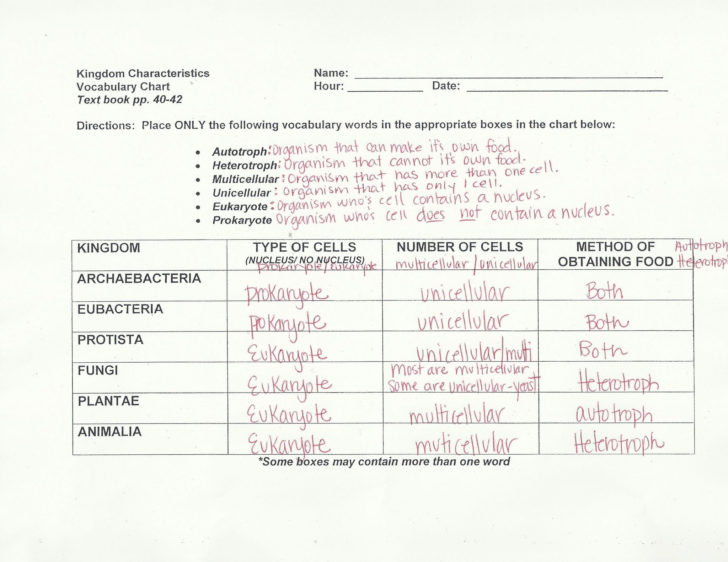 Kingdom Characteristics
Vocabulary Chart
Text book pp. 40-42
Name:
Hour: Date:
Directions: Place ONLY the following vocabulary words in the appropriate boxes in the chart below:
• Autotroph: Organism that can make it's own food.
• Heterotroph: Organism that cannot it's own food.
• Multicellular: Organism that has more than one cell.
• Unicellular: Organism that has only 1 cell.
• Eukaryote: Organism who's cell contains a nucleus.
• Prokaryote Organism who's cell does not contain a nucleus.
KINGDOM TYPE OF CELLS NUMBER OF CELLS METHOD OF Autotroph
(NUCLEUS/ NO NUCLEUS) OBTAINING FOOD Heterotrop
prokaryote/Eukaryote multicellular/unicellular
ARCHAEBACTERIA prokaryote unicellular Both
EUBACTERIA pokaryote unicellular Both
PROTISTA Eukaryote unicellular/multi Both
FUNGI Eukaryote most are multicellular Heterotroph
Some are unicellular-yeast
PLANTAE Eukaryote multicellular autotroph
ANIMALIA Eukaryote muticellular Heterotroph
*Some boxes may contain more than one word